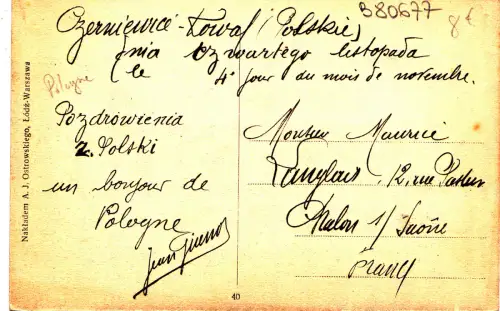 B80677
8€
Pologne
Czerniewice-Kowal (Polskie)
dnia czwartego listopada
le 4e jour du mois de novembre.
Pozdrowienia
z. Polski
un bonjour de
Pologne
Monsieur Maurice
Langlais 12, rue Pasteur
Chalon s/ Saône
France
Nakładem A. J. Ostrowskiego, Łódź-Warszawa
40